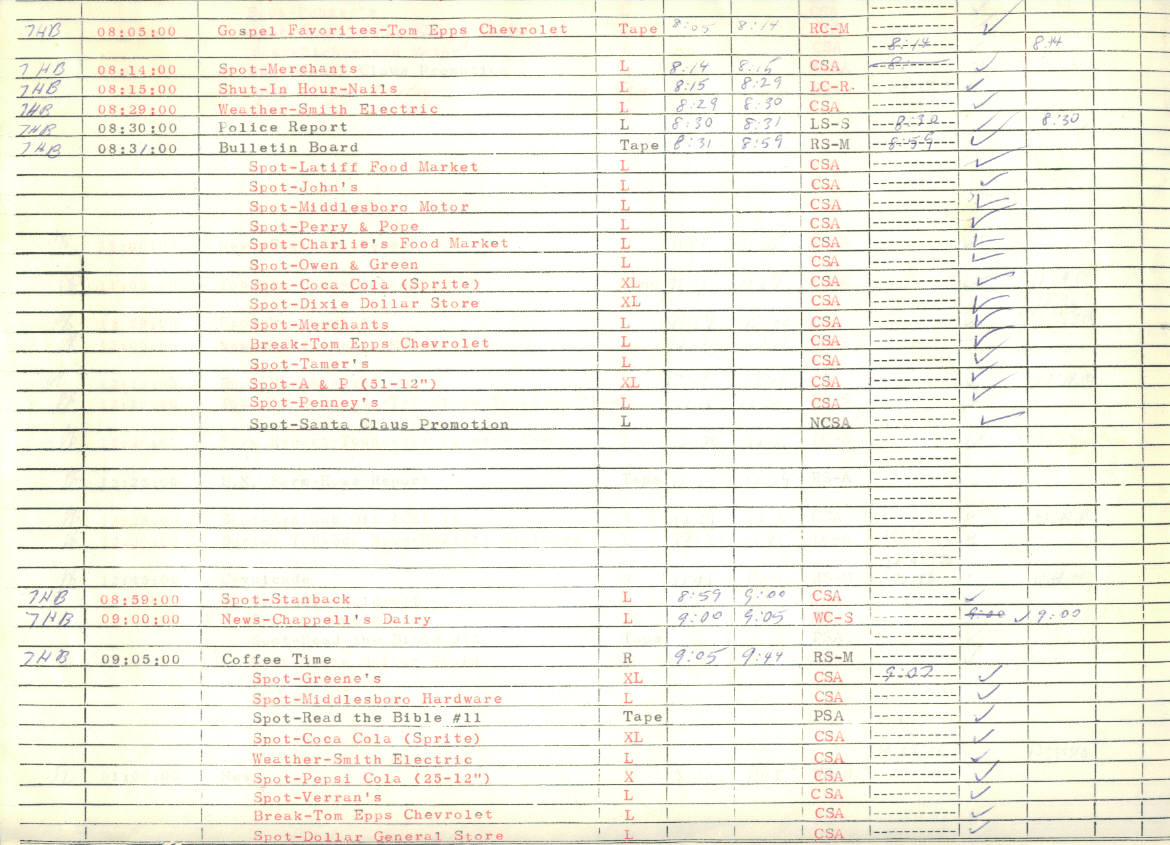 7HB 08:05:00 Gospel Favorites-Tom Epps Chevrolet Tape 8:05 8:14 RC-M ✓
8:14 8:14
7HB 08:14:00 Spot-Merchants L 8:14 8:15 CSA ✓
7HB 08:15:00 Shut-In Hour-Nails L 8:15 8:29 LC-R. ✓
7HB 08:29:00 Weather-Smith Electric L 8:29 8:30 CSA ✓
7HB 08:30:00 Police Report L 8:30 8:31 LS-S 8:30 ✓ 8:30
7HB 08:31:00 Bulletin Board Tape 8:31 8:59 RS-M 8:59 ✓
Spot-Latiff Food Market L CSA ✓
Spot-John's L CSA ✓
Spot-Middlesboro Motor L CSA ✓
Spot-Perry & Pope L CSA ✓
Spot-Charlie's Food Market L CSA ✓
Spot-Owen & Green L CSA ✓
Spot-Coca Cola (Sprite) XL CSA ✓
Spot-Dixie Dollar Store XL CSA ✓
Spot-Merchants L CSA ✓
Break-Tom Epps Chevrolet L CSA ✓
Spot-Tamer's L CSA ✓
Spot-A & P (51-12") XL CSA ✓
Spot-Penney's L CSA ✓
Spot-Santa Claus Promotion L NCSA ✓
7HB 08:59:00 Spot-Stanback L 8:59 9:00 CSA ✓
7HB 09:00:00 News-Chappell's Dairy L 9:00 9:05 WC-S 9:00 ✓ 9:00
7HB 09:05:00 Coffee Time R 9:05 9:44 RS-M
Spot-Greene's XL CSA 9:02 ✓
Spot-Middlesboro Hardware L CSA ✓
Spot-Read the Bible #11 Tape PSA ✓
Spot-Coca Cola (Sprite) XL CSA ✓
Weather-Smith Electric L CSA ✓
Spot-Pepsi Cola (25-12") X CSA ✓
Spot-Verran's L CSA ✓
Break-Tom Epps Chevrolet L CSA ✓
Spot-Dollar General Store L CSA ✓